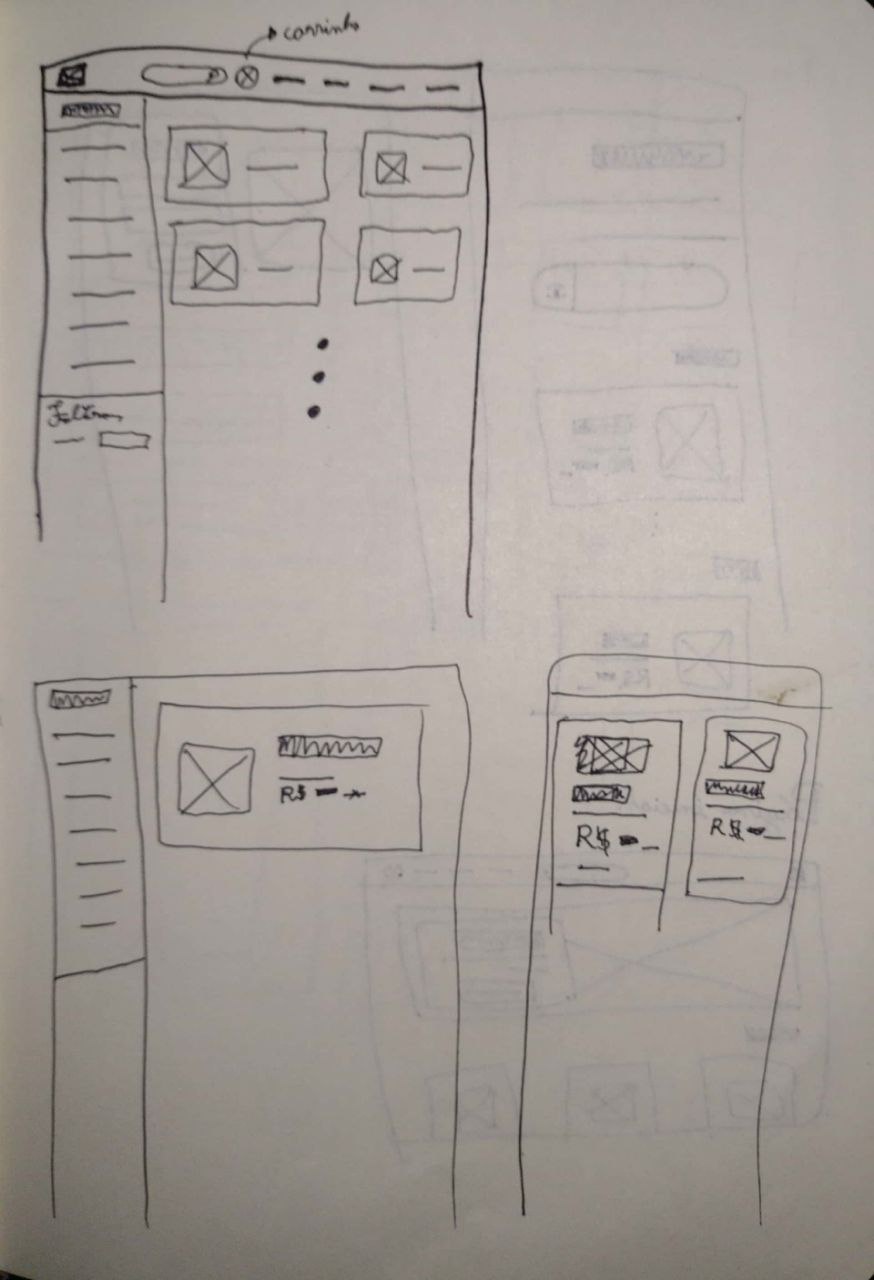 carrinho
Filtros
R$
R$
R$